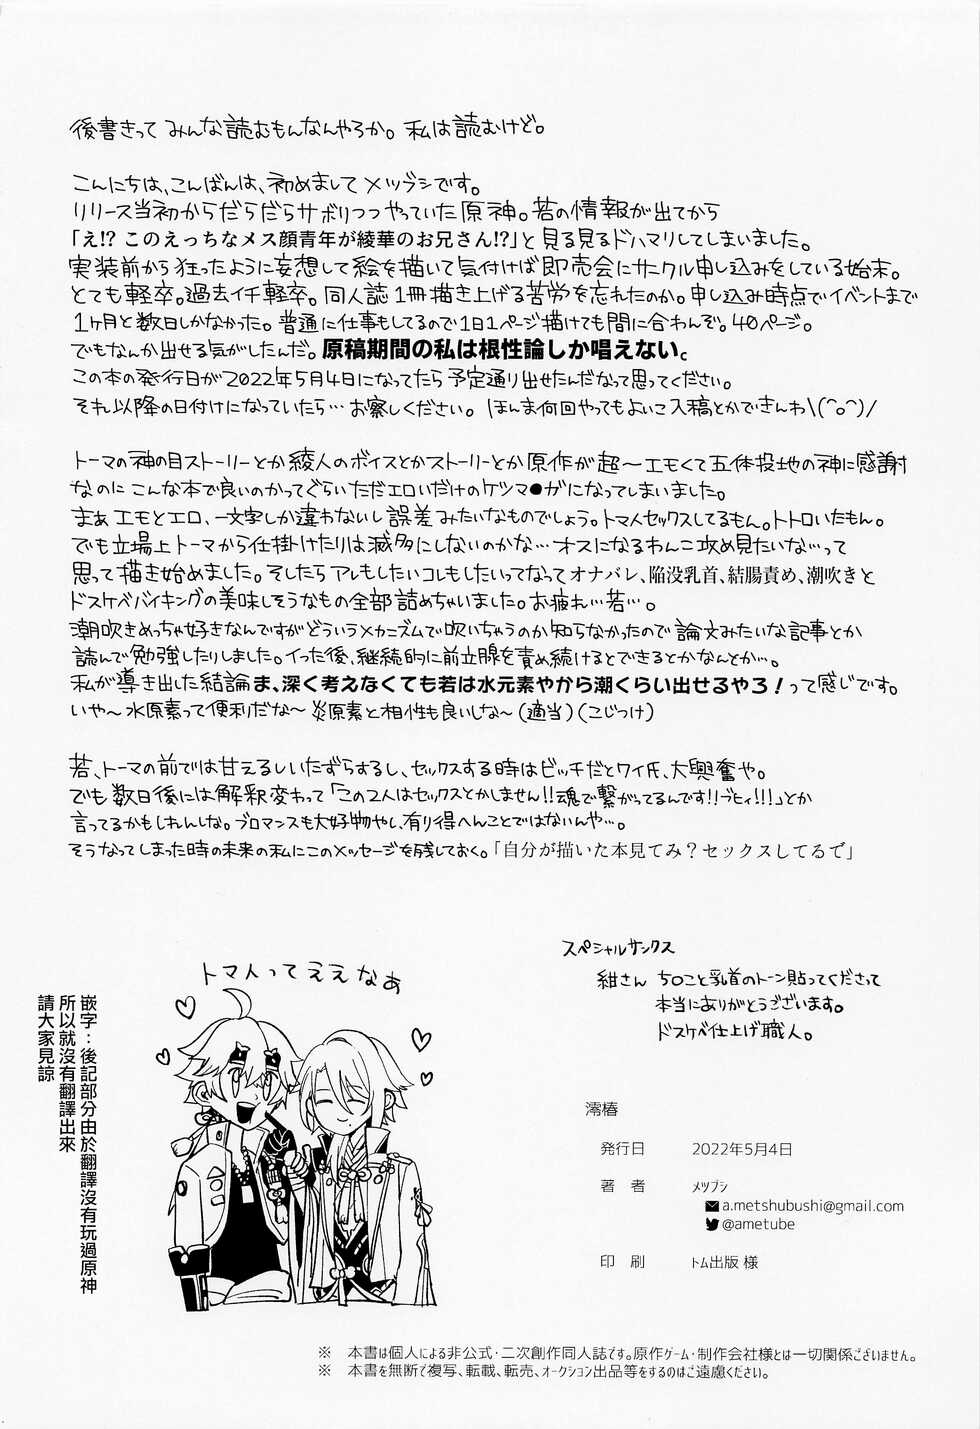 後書きって みんな読むもんなんやろか。私は読むけど。
こんにちは、こんばんは、初めましてメツブシです。
リリース当初からだらだらサボりつつやっていた原神。若の情報が出てから
「え!? このえっちなメス顔青年が綾華のお兄さん!?」と見る見るドハマりしてしまいました。
実装前から狂ったように妄想して絵を描いて気付けば即売会にサークル申し込みをしている始末。
とても軽卒。過去イチ軽卒。同人誌1冊描き上げる苦労を忘れたのか。申し込み時点でイベントまで
1ヶ月と数日しかなかった。普通に仕事もしてるので1日1ページ描けても間に合わんぞ。40ページ。
でもなんか出せる気がしたんだ。原稿期間の私は根性論しか唱えない。
この本の発行日が2022年5月4日になってたら予定通り出せたんだなって思ってください。
それ以降の日付けになっていたら…お察しください。ほんま何回やってもよいこ入稿とかできんわ\(^o^)/
トーマの神の目ストーリーとか綾人のボイスとかストーリーとか原作が超〜エモくて五体投地の神に感謝
なのにこんな本で良いのかってぐらいただエロいだけのケツマ●がになってしまいました。
まぁエモとエロ、一文字しか違わないし誤差みたいなものでしょう。トマ人セックスしてるもん。トトロいたもん。
でも立場上トーマから仕掛けたりは滅多にしないのかな…オスになるわんこ攻め見たいな…って
思って描き始めました。そしたらアレもしたいコレもしたいってなってオナバレ、陥没乳首、結腸責め、潮吹きと
ドスケベバイキングの美味しそうなもの全部詰めちゃいました。お疲れ…若…。
潮吹きめっちゃ好きなんですがどういうメカニズムで吹いちゃうのか知らなかったので論文みたいな記事とか
読んで勉強したりしました。イった後、継続的に前立腺を責め続けるとできるとかなんとか…。
私が導き出した結論ま、深く考えなくても若は水元素やから潮くらい出せるやろ!って感じです。
いや〜水原素って便利だな〜炎原素と相性も良いしな〜(適当)(こじつけ)
若、トーマの前では甘えるしいたずらするし、セックスする時はビッチだとワイ氏、大興奮や。
でも数日後には解釈変わって「この2人はセックスとかしません!!魂で繋がってるんです!!ブヒィ!!!」とか
言ってるかもしれんしな。ブロマンスも大好物やし、有り得へんことではないんや…。
そうなってしまった時の未来の私にこのメッセージを残しておく。「自分が描いた本見てみ?セックスしてるで」
スペシャルサンクス
紺さん ち○こと乳首のトーン貼ってくださって
本当にありがとうございます。
ドスケベ仕上げ職人。
トマ人ってええなぁ
嵌字：後記部分由於翻譯沒有玩過原神
所以就沒有翻譯出來
請大家見諒
澪椿
発行日 2022年5月4日
著 者 メツブシ
a.metshubushi@gmail.com
@ametube
印 刷 トム出版 様
※ 本書は個人による非公式・二次創作同人誌です。原作ゲーム・制作会社様とは一切関係ございません。
※ 本書を無断で複写、転載、転売、オークション出品等をするのはご遠慮ください。